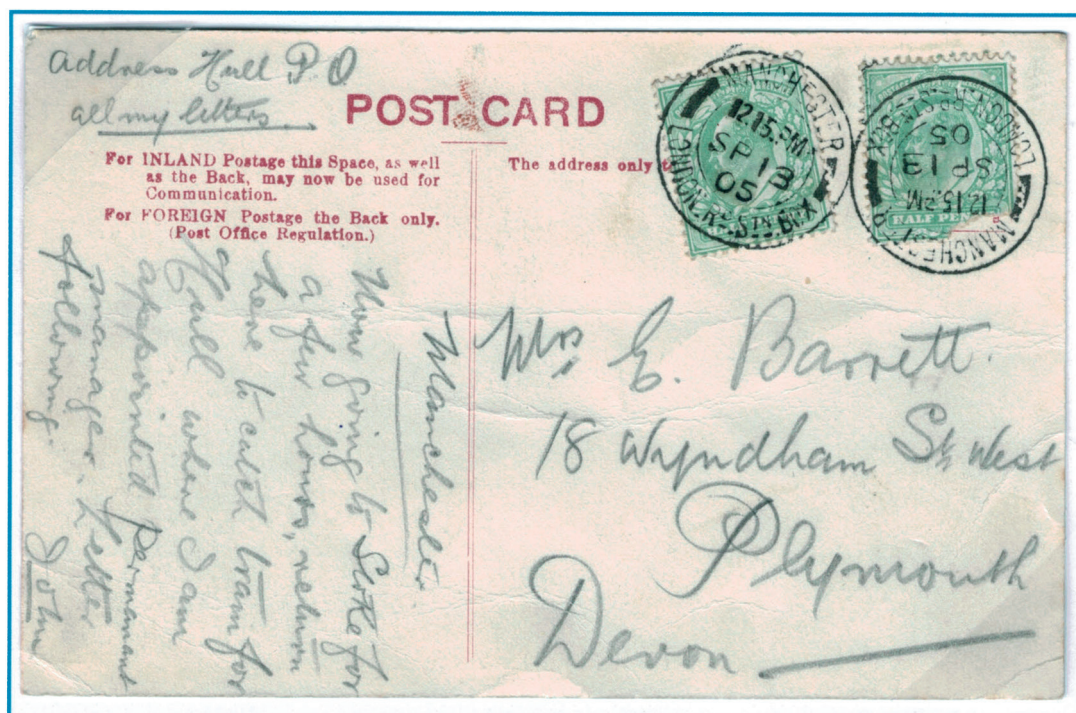 Address Hull P.O
all my letters.
POST CARD
For INLAND Postage this Space, as well
as the Back, may now be used for
Communication.
For FOREIGN Postage the Back only.
(Post Office Regulation.)
The address only t
MANCHESTER
12.15.PM
SP 13
05
MANCHESTER
12.15.PM
SP 13
05
HALF PEN
Manchester
Now going to Stoke for
a few hours, return
here to catch train for
Hull where I am
appointed permanant
manager. Letter
following.
John
Mrs E. Barrett.
18 Wyndham St. West
Plymouth
Devon